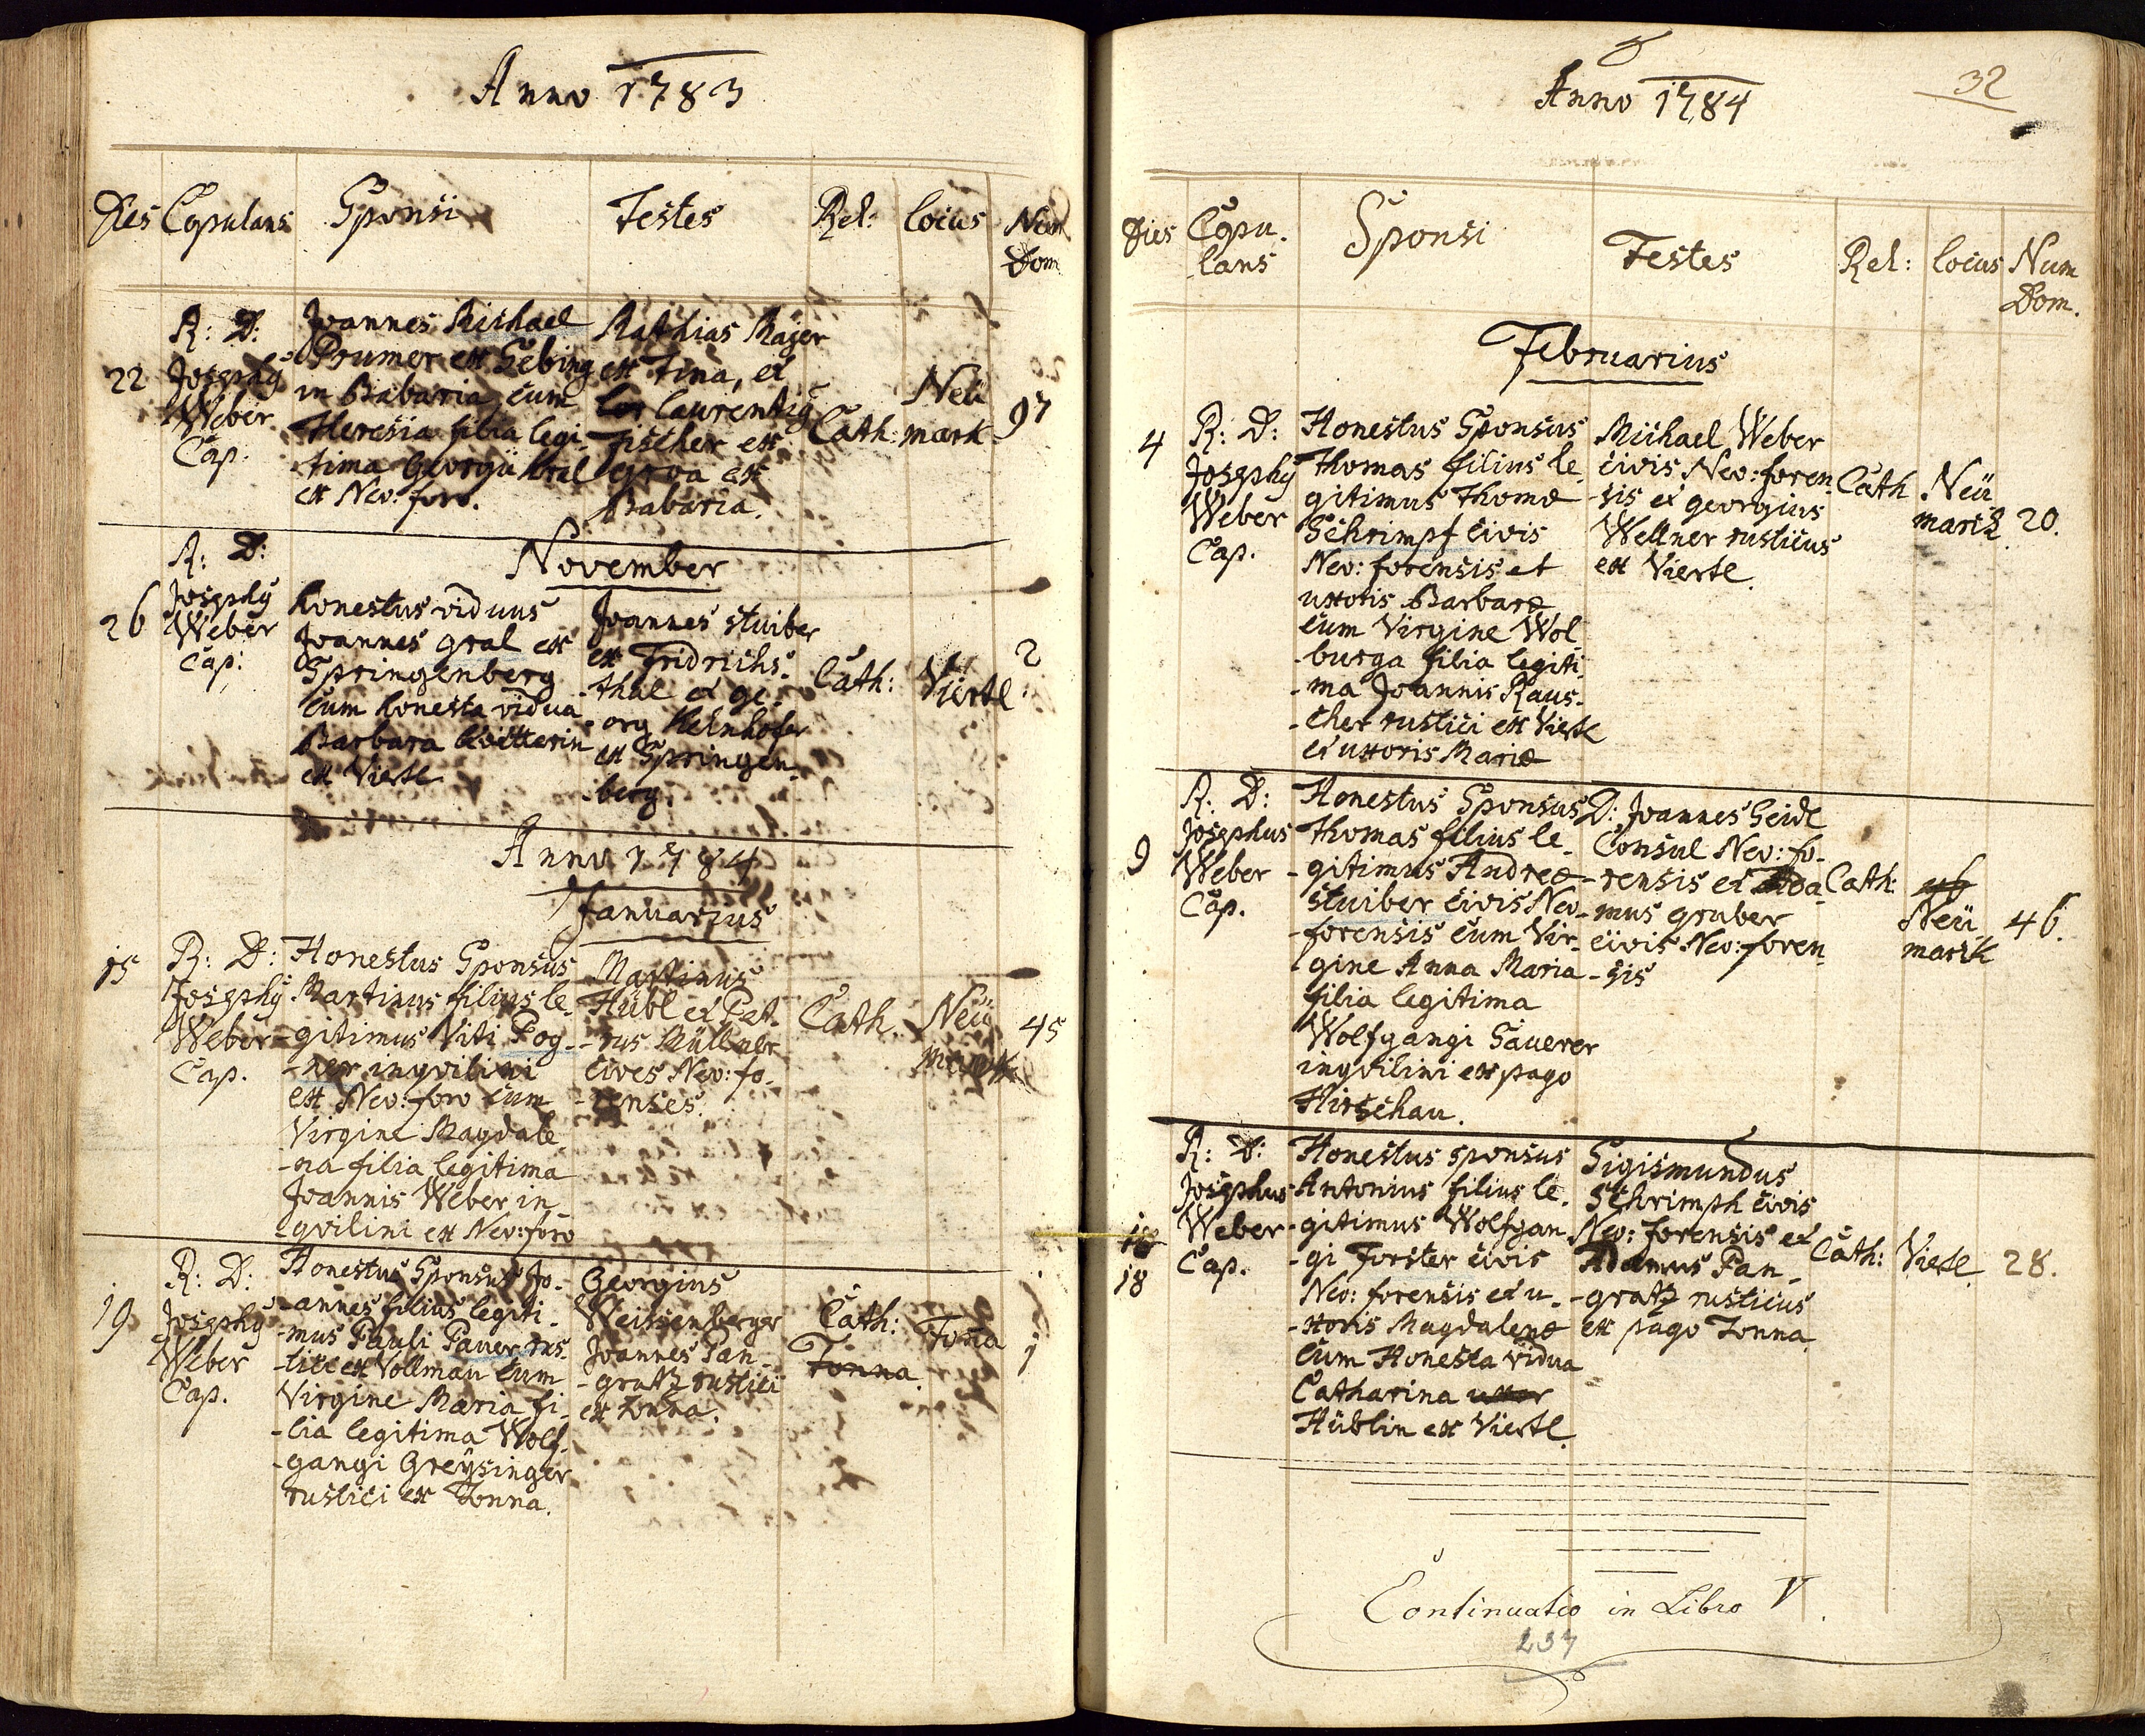 Anno 1783
Dies Copulans Sponsi Testes Rel: locus Num
Dom
R: D:
22 Josephy
Weber
Cap.
Joannes Michael
Prumer ex Sebing
in Babaria, cum
Theresia filia legi-
tima Georgii Kral
ex Neo: foro.
Mathias Majer
ex Tina, et
laurentiy
Fischer ex
ex
Babaria.
Cath:
Neü
mark
97
November
R: D:
26 Josephy
Weber
Cap:
honestus viduus
Joannes gral ex
Springenberg
cum honesta vidua
Barbara
ex Viertl
Joannes stuiber
ex Fridrichs-
-thal et ge-
-org Helnhofer
ex Springen-
-berg.
Cath:
Viertl
2
Anno 1784
Januarius
15 R: D:
Josephy
Weber
Cap.
Honestus Sponsus
Martinus filius le-
-gitimus Viti Pog-
-ner inqvilini
ex Neo: foro cum
Virgine Magdale
-na filia legitima
Joannis Weber in
-qvilini ex Neo: foro
Martinus
Hübl et Pet-
-rus Müllner
cives Neo: fo-
-renses.
Cath.
Neü
mark
45
R: D:
19 Josephy
Weber
Cap.
Honestus Sponsus Jo-
-annes filius legiti-
-mus Pauli Paver rus-
-tici ex Vollmau cum
Virgine Maria fi-
-lia legitima Wolf-
-gangi Greysinger
rustici ex Tonna.
Georgius
Weissenberger
Joannes Pan-
-gratz rustici
ex Tonna.
Cath:
Tonna.
Tona
1
32
Anno 1784
Dies Copu- Sponsi Testes Rel: locus Num
lans Dom.
Februarius
4 R: D:
Josephy
Weber
Cap.
Honestus Sponsus
Thomas filius le-
gitimus Thomæ
Schrimpf civis
Neo: forensis et
uxoris Barbaræ
cum Virgine Wol-
-burga filia legiti-
-ma Joannis Raus-
-cher rustici ex Viertl
et uxoris Mariæ
Michael Weber
civis Neo: foren-
-sis et georgius
Wellner rusticus
ex Viertl.
Cath
Neü
mark
20.
R: D:
9 Josephus
Weber
Cap.
Honestus Sponsus
Thomas filius le-
-gitimus Andreæ
stuiber civis Neo-
-forensis cum Vir-
gine Anna Maria
filia legitima
Wolfgangi Saverer
inqvilini ex pago
Hirschau.
D: Joannes Seidl
Consul Neo: fo-
-rensis et Ada
-mus gruber
civis Neo: foren-
-sis
Cath:
46
Neü
mark
46.
R: D:
Josephus
Weber
Cap.
18
18
Honestus sponsus
Antonius filius le-
-gitimus Wolfgan-
-gi Forster civis
Neo: forensis et u-
-xoris Magdalenæ
cum Honesta vidua
Catharina uxor
Hüblin ex Viertl.
Sigismundus
Schrimph civis
Neo: forensis et
Adamus Pan-
-gratz rusticus
ex pago Tonna
Cath:
Viertl
28.
Continuatio in Libro V.
237